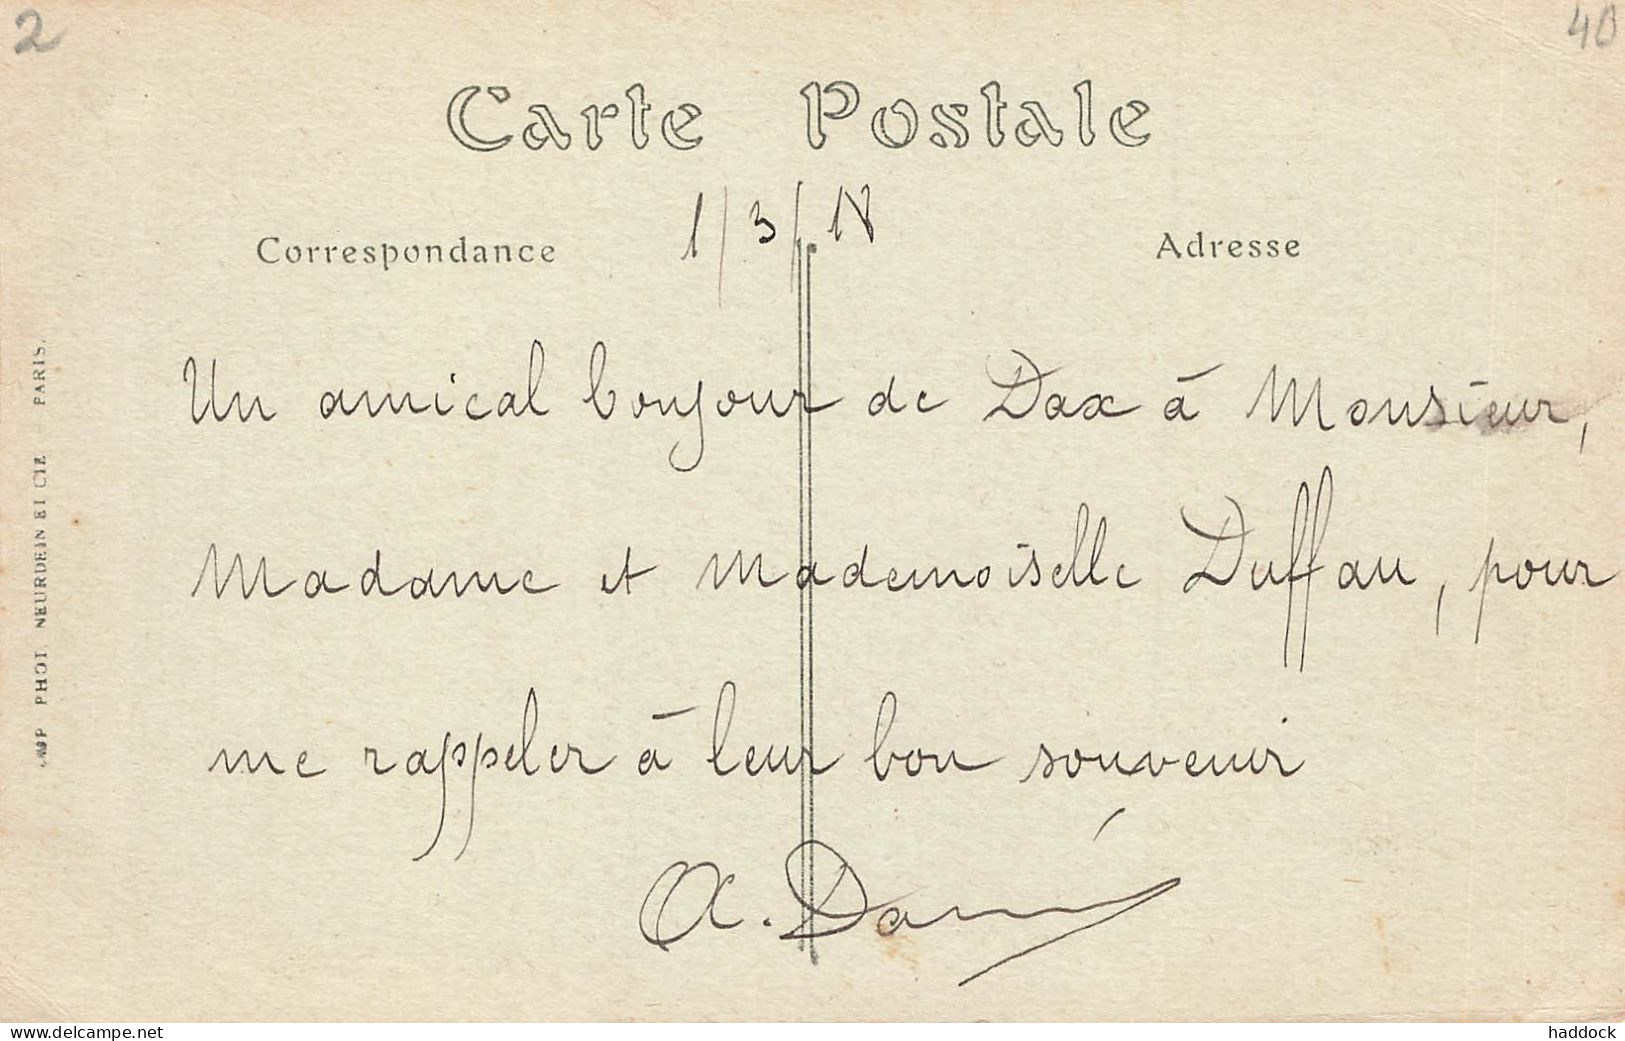 2
40
Carte Postale
1/3/18
Correspondance
Adresse
Un amical bonjour de Dax à Monsieur,
Madame et Mademoiselle Duffau, pour
me rappeler à leur bon souvenir
A.
IMP PHOT. NEURDEIN ET CIE - PARIS.
www.delcampe.net
haddock